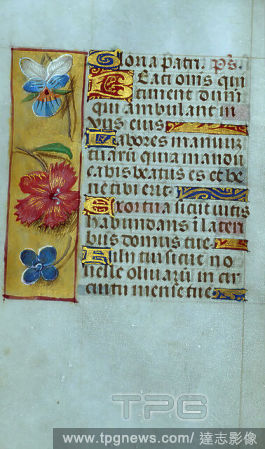 Gloria patri. ps.
Beati oīns qui
timent dūm
qui ambulant in
viis eius
Labores manuū
tuarū quia mandu
cabis beatus es et be
ne tibi erit
Uxor tua sicut vitis
habundans ī lateri
bus domus tue
Filii tui sicut no
velle olivarū in cir
cuitu mense tue
TPG
www.tpgnews.com/ 達志影像